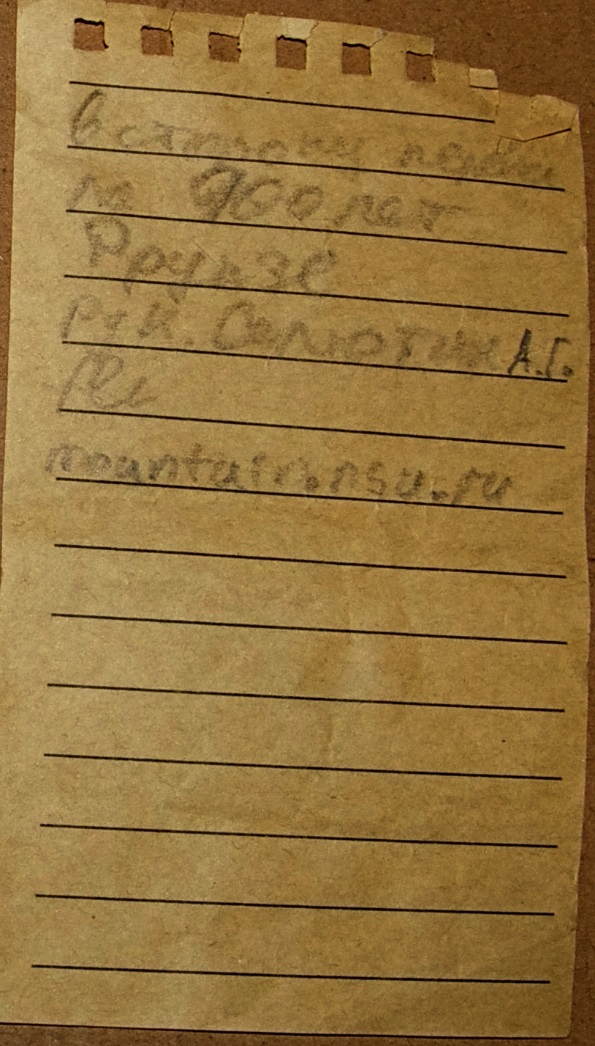 в сторону перева
ла 900 лет
Фрунзе
Рук. Салютин А.Г.
mountain.nsu.ru